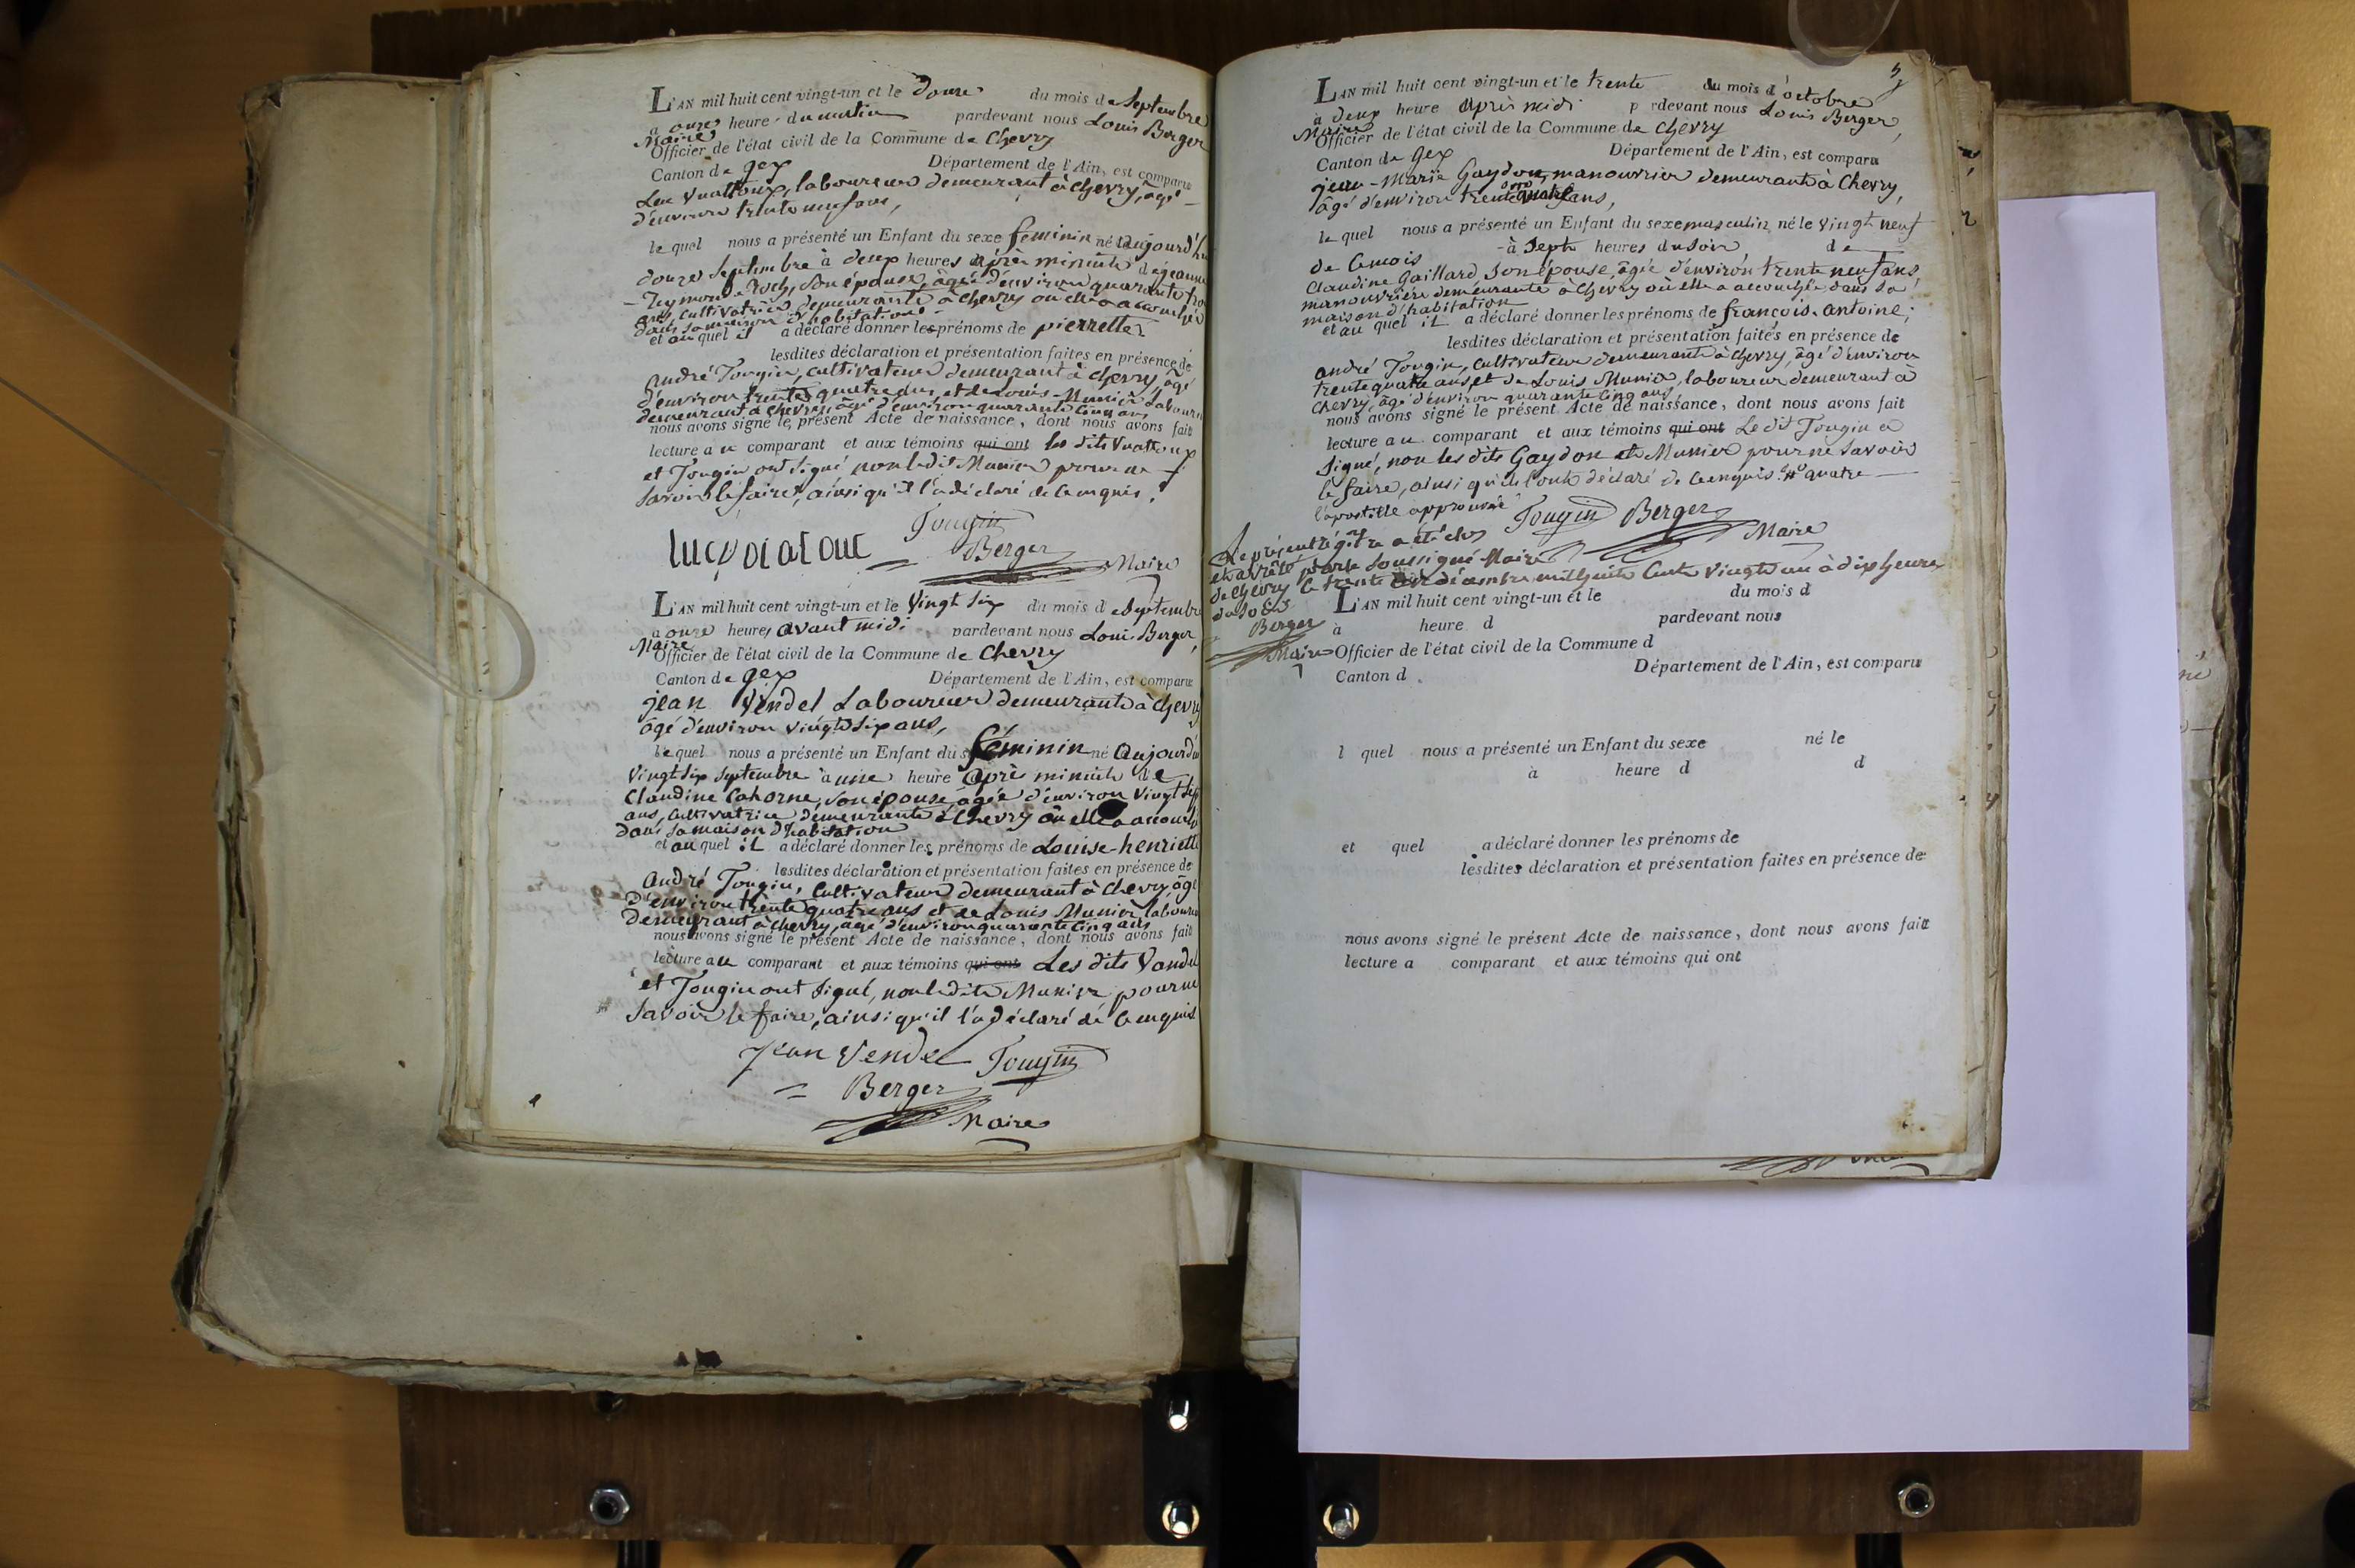 L'AN mil huit cent vingt-un et le Douze du mois de Septembre
à onze heures du matin pardevant nous Louis Berger
Maire
Officier de l'état civil de la Commune de Chevry
Canton de gex Département de l'Ain, est comparu
Luc Vuattoux, laboureur demeurant à Chevry, âgé
d'environ trente neuf ans,
le quel nous a présenté un Enfant du sexe feminin né aujourd'hui
douze Septembre à deux heures après minuit de jeanne
Roch, son épouse, âgée d'environ quarante
ans, cultivatrice demeurante à Chevry où elle a accouché
dans sa maison d'habitation
et au quel il a déclaré donner les prénoms de pierrette
lesdites déclaration et présentation faites en présence de
André Tougin, cultivateur demeurant à Chevry, âgé
d'environ trente quatre ans, et de Louis Munier Laboureur
demeurant à Chevry, âgé d'environ quarante cinq ans,
nous avons signé le présent Acte de naissance, dont nous avons fait
lecture au comparant et aux témoins qui ont les dits Vuattoux
et Tougin ont signé, non le dit Munier pour ne
savoir le faire, ainsi qu'il l'a déclaré de ce enquis.
Tougin
Berger
Maire
L'AN mil huit cent vingt-un et le Vingt Six du mois de Septembre
à onze heures avant midi pardevant nous Louis Berger,
Maire
Officier de l'état civil de la Commune de Chevry
Canton de gex Département de l'Ain, est comparu
jean Vendel Laboureur demeurant à Chevry
âgé d'environ vingt Six ans,
le quel nous a présenté un Enfant du s féminin né Aujourd'hui
Vingt Six Septembre à une heure après minuit de
Claudine Cahorne, son épouse, âgée d'environ Vingt Sept
ans, Cultivatrice demeurante à Chevry où elle a accouché
dans sa maison d'habitation
et au quel il a déclaré donner les prénoms de Louise-henriette
lesdites déclaration et présentation faites en présence de
André Tougin, Cultivateur demeurant à Chevry, âgé
D'environ trente quatre ans et de Louis Munier, laboureur
Demeurant à Chevry, âgé d'environ quarante Cinq ans,
nous avons signé le présent Acte de naissance, dont nous avons fait
lecture au comparant et aux témoins qui ont Les dits Vandel
et Tougin ont signé, non le dit Munier pour ne
Savoir le faire, ainsi qu'il l'a déclaré de Ce enquis
Jean Vendel Tougin
Berger
Maire
L'AN mil huit cent vingt-un et le trente du mois d'octobre
à deux heure après midi pardevant nous Louis Berger,
Maire
Officier de l'état civil de la Commune de Chevry
Canton de gex Département de l'Ain, est comparu
jean-Marie Gaydon, manouvrier demeurant à Chevry,
âgé d'environ trente quatre ans,
le quel nous a présenté un Enfant du sexe masculin né le Vingt neuf
de Ce mois à Sept heures du Soir de
Claudine Gaillard Son épouse, âgée d'environ trente neuf ans,
manouvrière demeurante à Chevry où elle a accouché dans sa
maison d'habitation
et au quel il a déclaré donner les prénoms de françois-Antoine,
lesdites déclaration et présentation faites en présence de
André Tougin, Cultivateur demeurant à Chevry, âgé d'environ
trente quatre ans, et de Louis Munier, laboureur demeurant à
Chevry, âgé d'environ quarante Cinq ans
nous avons signé le présent Acte de naissance, dont nous avons fait
lecture au comparant et aux témoins qui ont Le dit Tougin a
Signé, non les dits Gaydon et Munier pour ne Savoir
le faire, ainsi qu'ils l'ont déclaré de Ce enquis quatre
l'apostille approuvée Tougin Berger
Maire
Le présent régitre a été clos
et arrêté par le Soussigné Maire
de Chevry le trente décembre mil huit Cent Vingt un à dix heures
du Soir
Berger
Maire
L'AN mil huit cent vingt-un et le du mois d
à heure d pardevant nous
Officier de l'état civil de la Commune d
Canton d Département de l'Ain, est comparu
l quel nous a présenté un Enfant du sexe né le
à heure d d
et quel a déclaré donner les prénoms de
lesdites déclaration et présentation faites en présence de
nous avons signé le présent Acte de naissance, dont nous avons fait
lecture a comparant et aux témoins qui ont